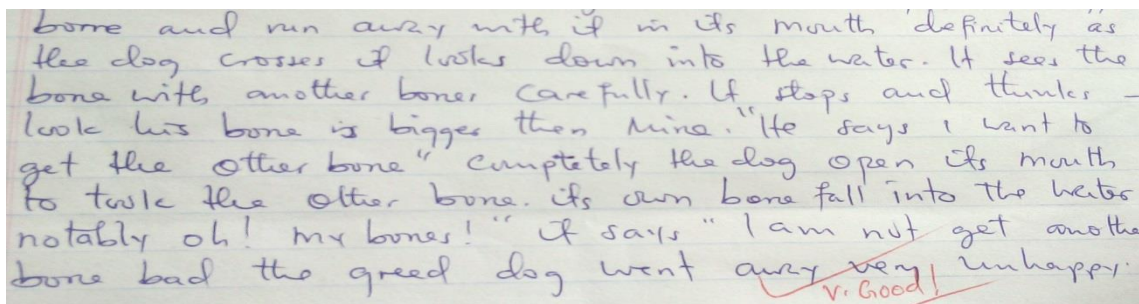 bone and run away with it in its mouth definitely" as
the dog crosses it looks down into the water. It sees the
bone with another bones carefully. It stops and thinks -
look his bone is bigger then mine. "He says I want to
get the other bone" cumptetely the dog open its mouth
to took the other bone. its own bone fall into the water
notably oh! my bones!" it says "I am not get anothe
bone bad the greed dog went away very unhappy.
V. Good!